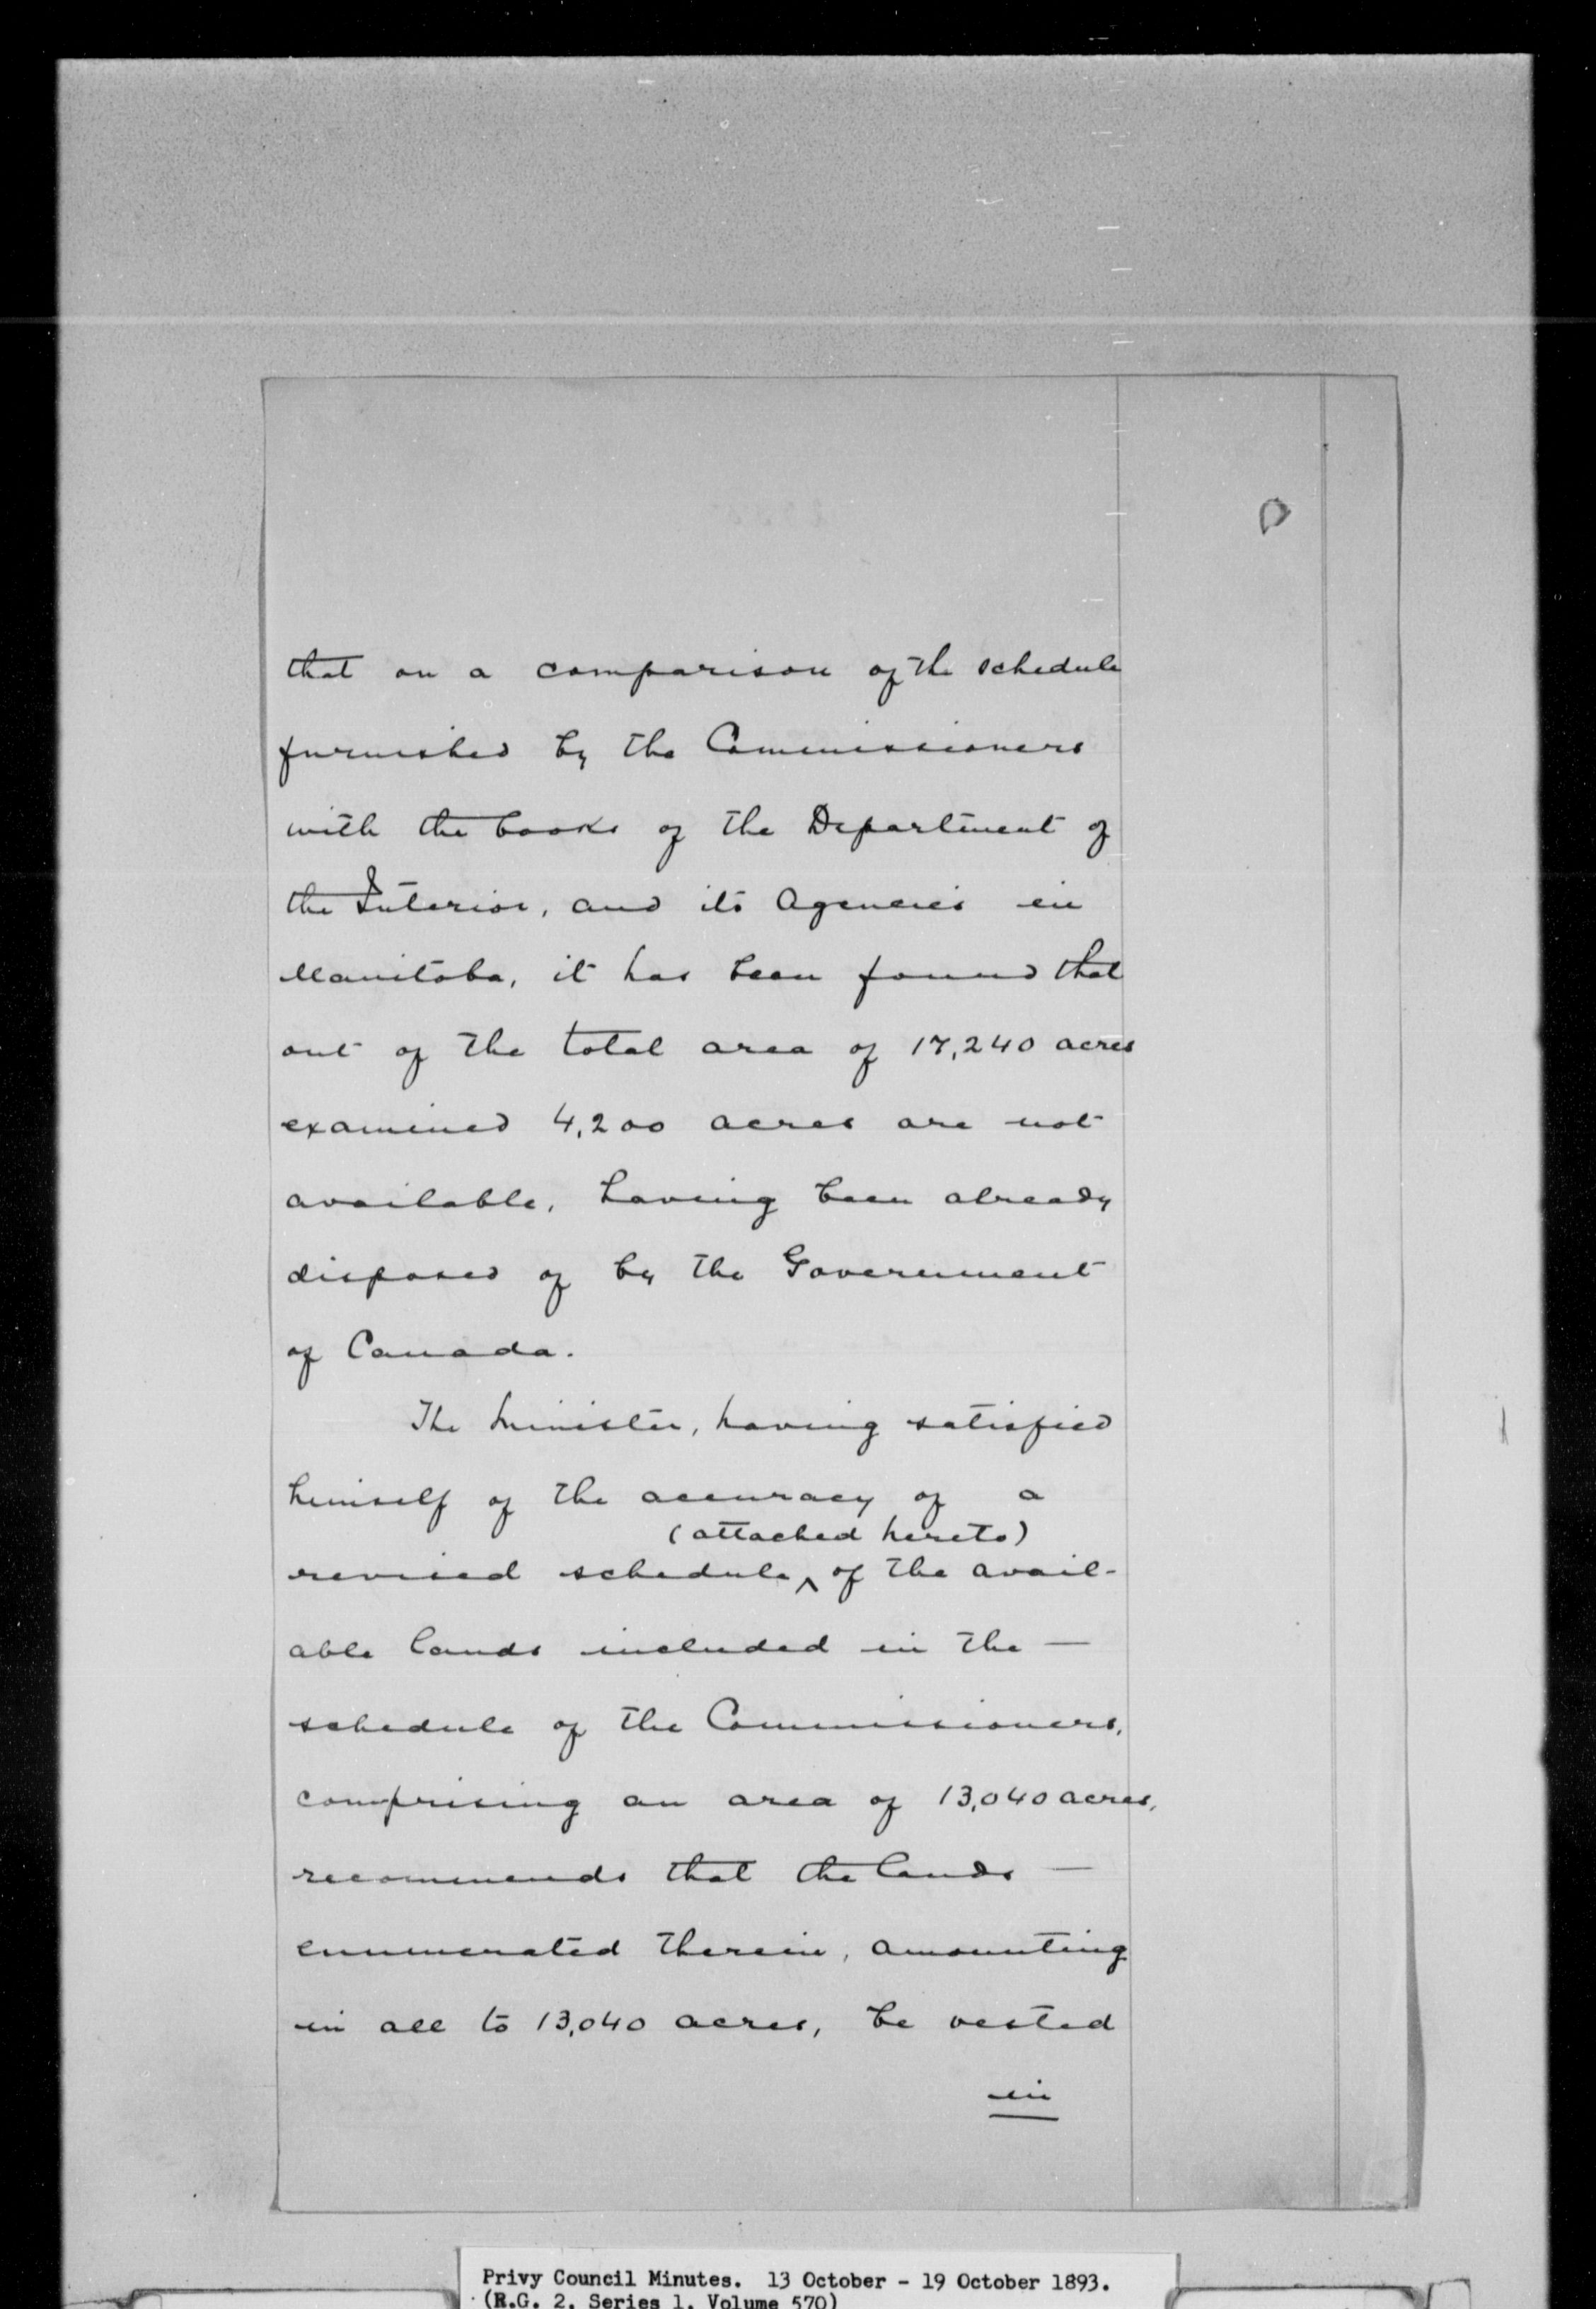 that on a comparison of the schedule
furnished by the Commissioners
with the books of the Department of
the Interior, and its Agencies in
Manitoba, it has been found that
out of the total area of 17,240 acres
examined 4,200 acres are not
available, having been already
disposed of by the Government
of Canada.
The Minister, having satisfied
himself of the accuracy of a
(attached hereto)
revised schedule ^ of the avail-
able lands included in the —
schedule of the Commissioners,
comprising an area of 13,040 acres,
recommends that the lands —
enumerated therein, amounting
in all to 13,040 acres, be vested
in
Privy Council Minutes. 13 October - 19 October 1893.
(R.G. 2, Series 1, Volume 570)